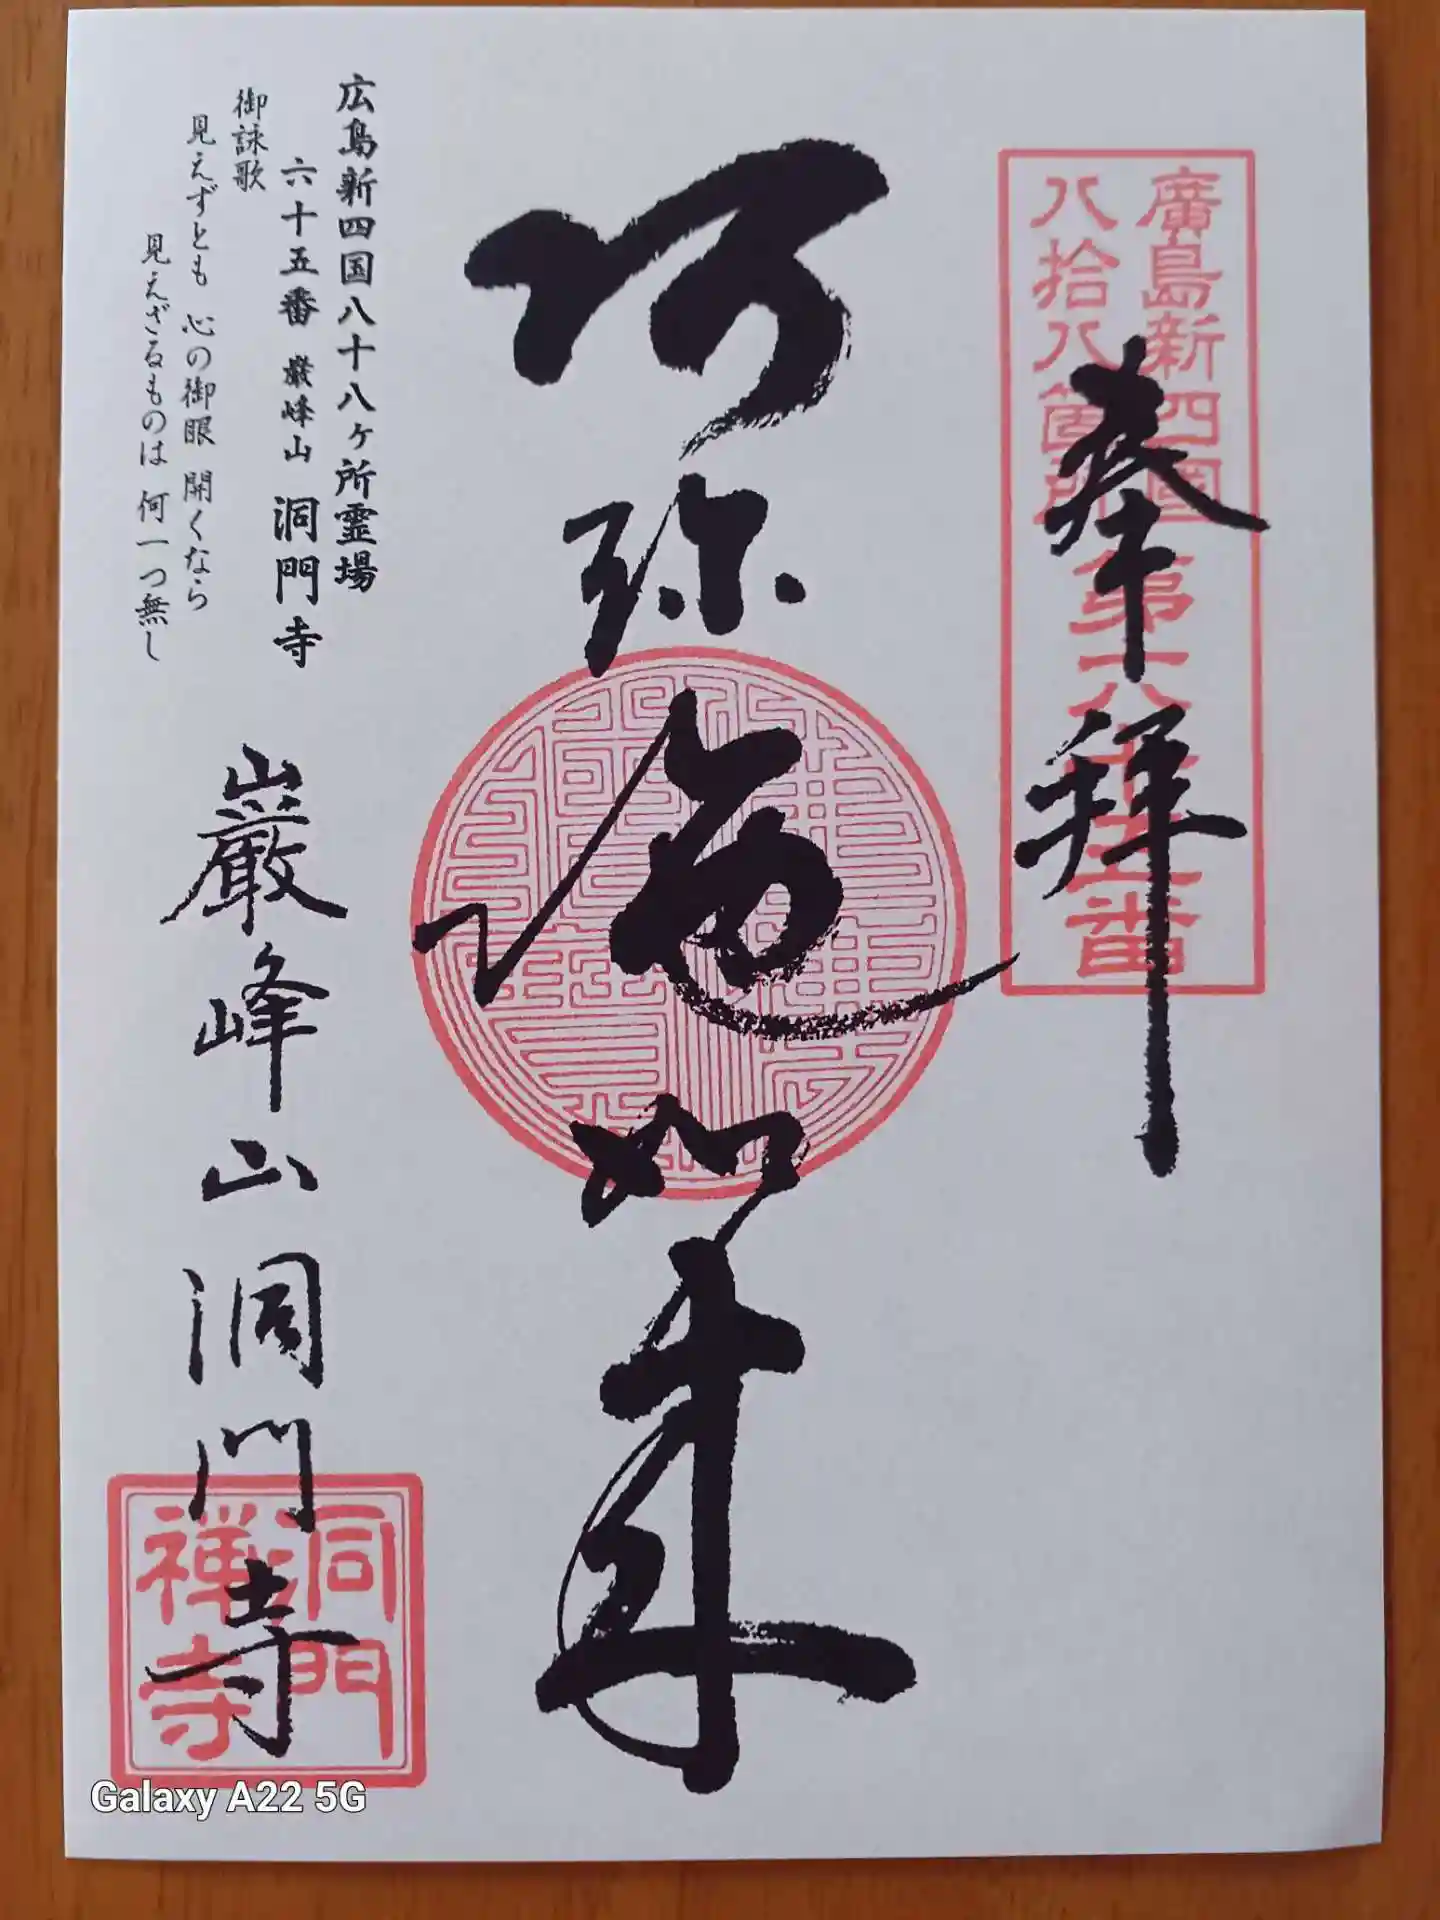 奉拝
廣島新四國
八拾八箇所
第六十五番
阿弥陀如来
広島新四国八十八ヶ所霊場
六十五番 巌峰山 洞門寺
御詠歌
見えずとも 心の御眼 開くなら
見えざるものは 何一つ無し
巌峰山洞門寺
洞門
禅寺
Galaxy A22 5G